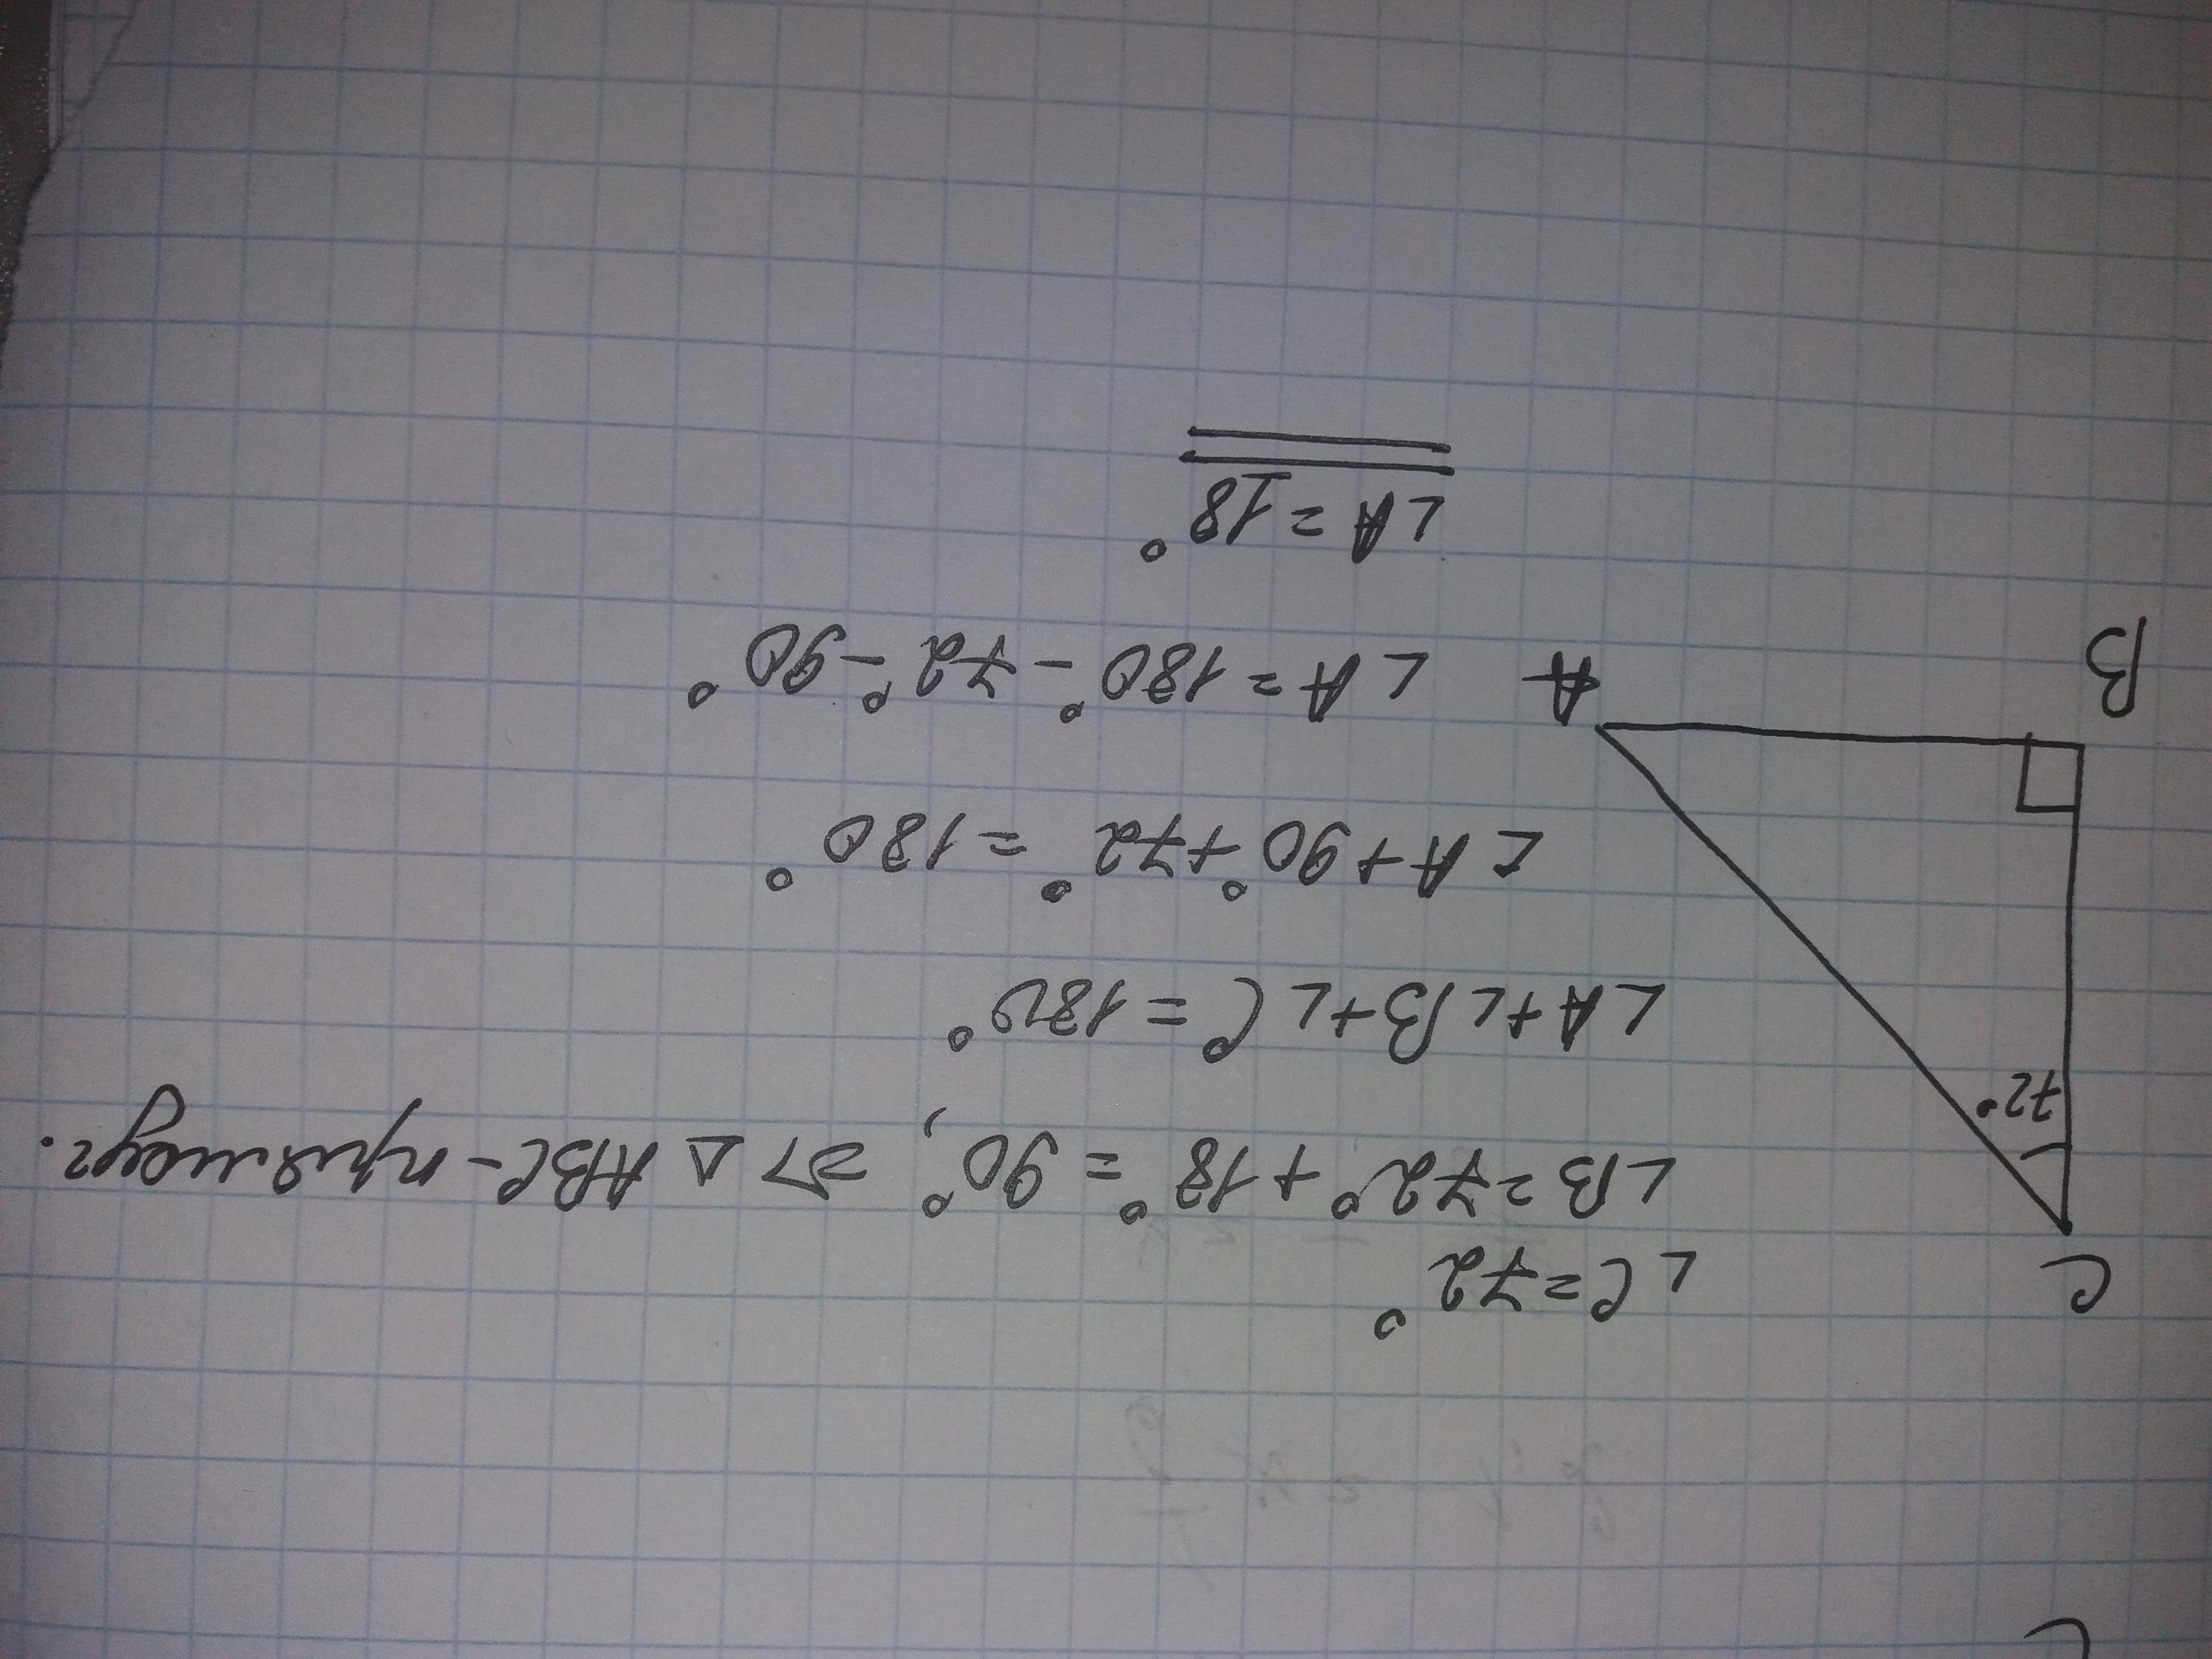 C
∠C=72°
∠B=72°+18°=90°, ⇒ △ABC-прямоуг.
72°
∠A+∠B+∠C=180°
∠A+90°+72°=180°
B
A
∠A=180°-72°-90°
∠A=18°